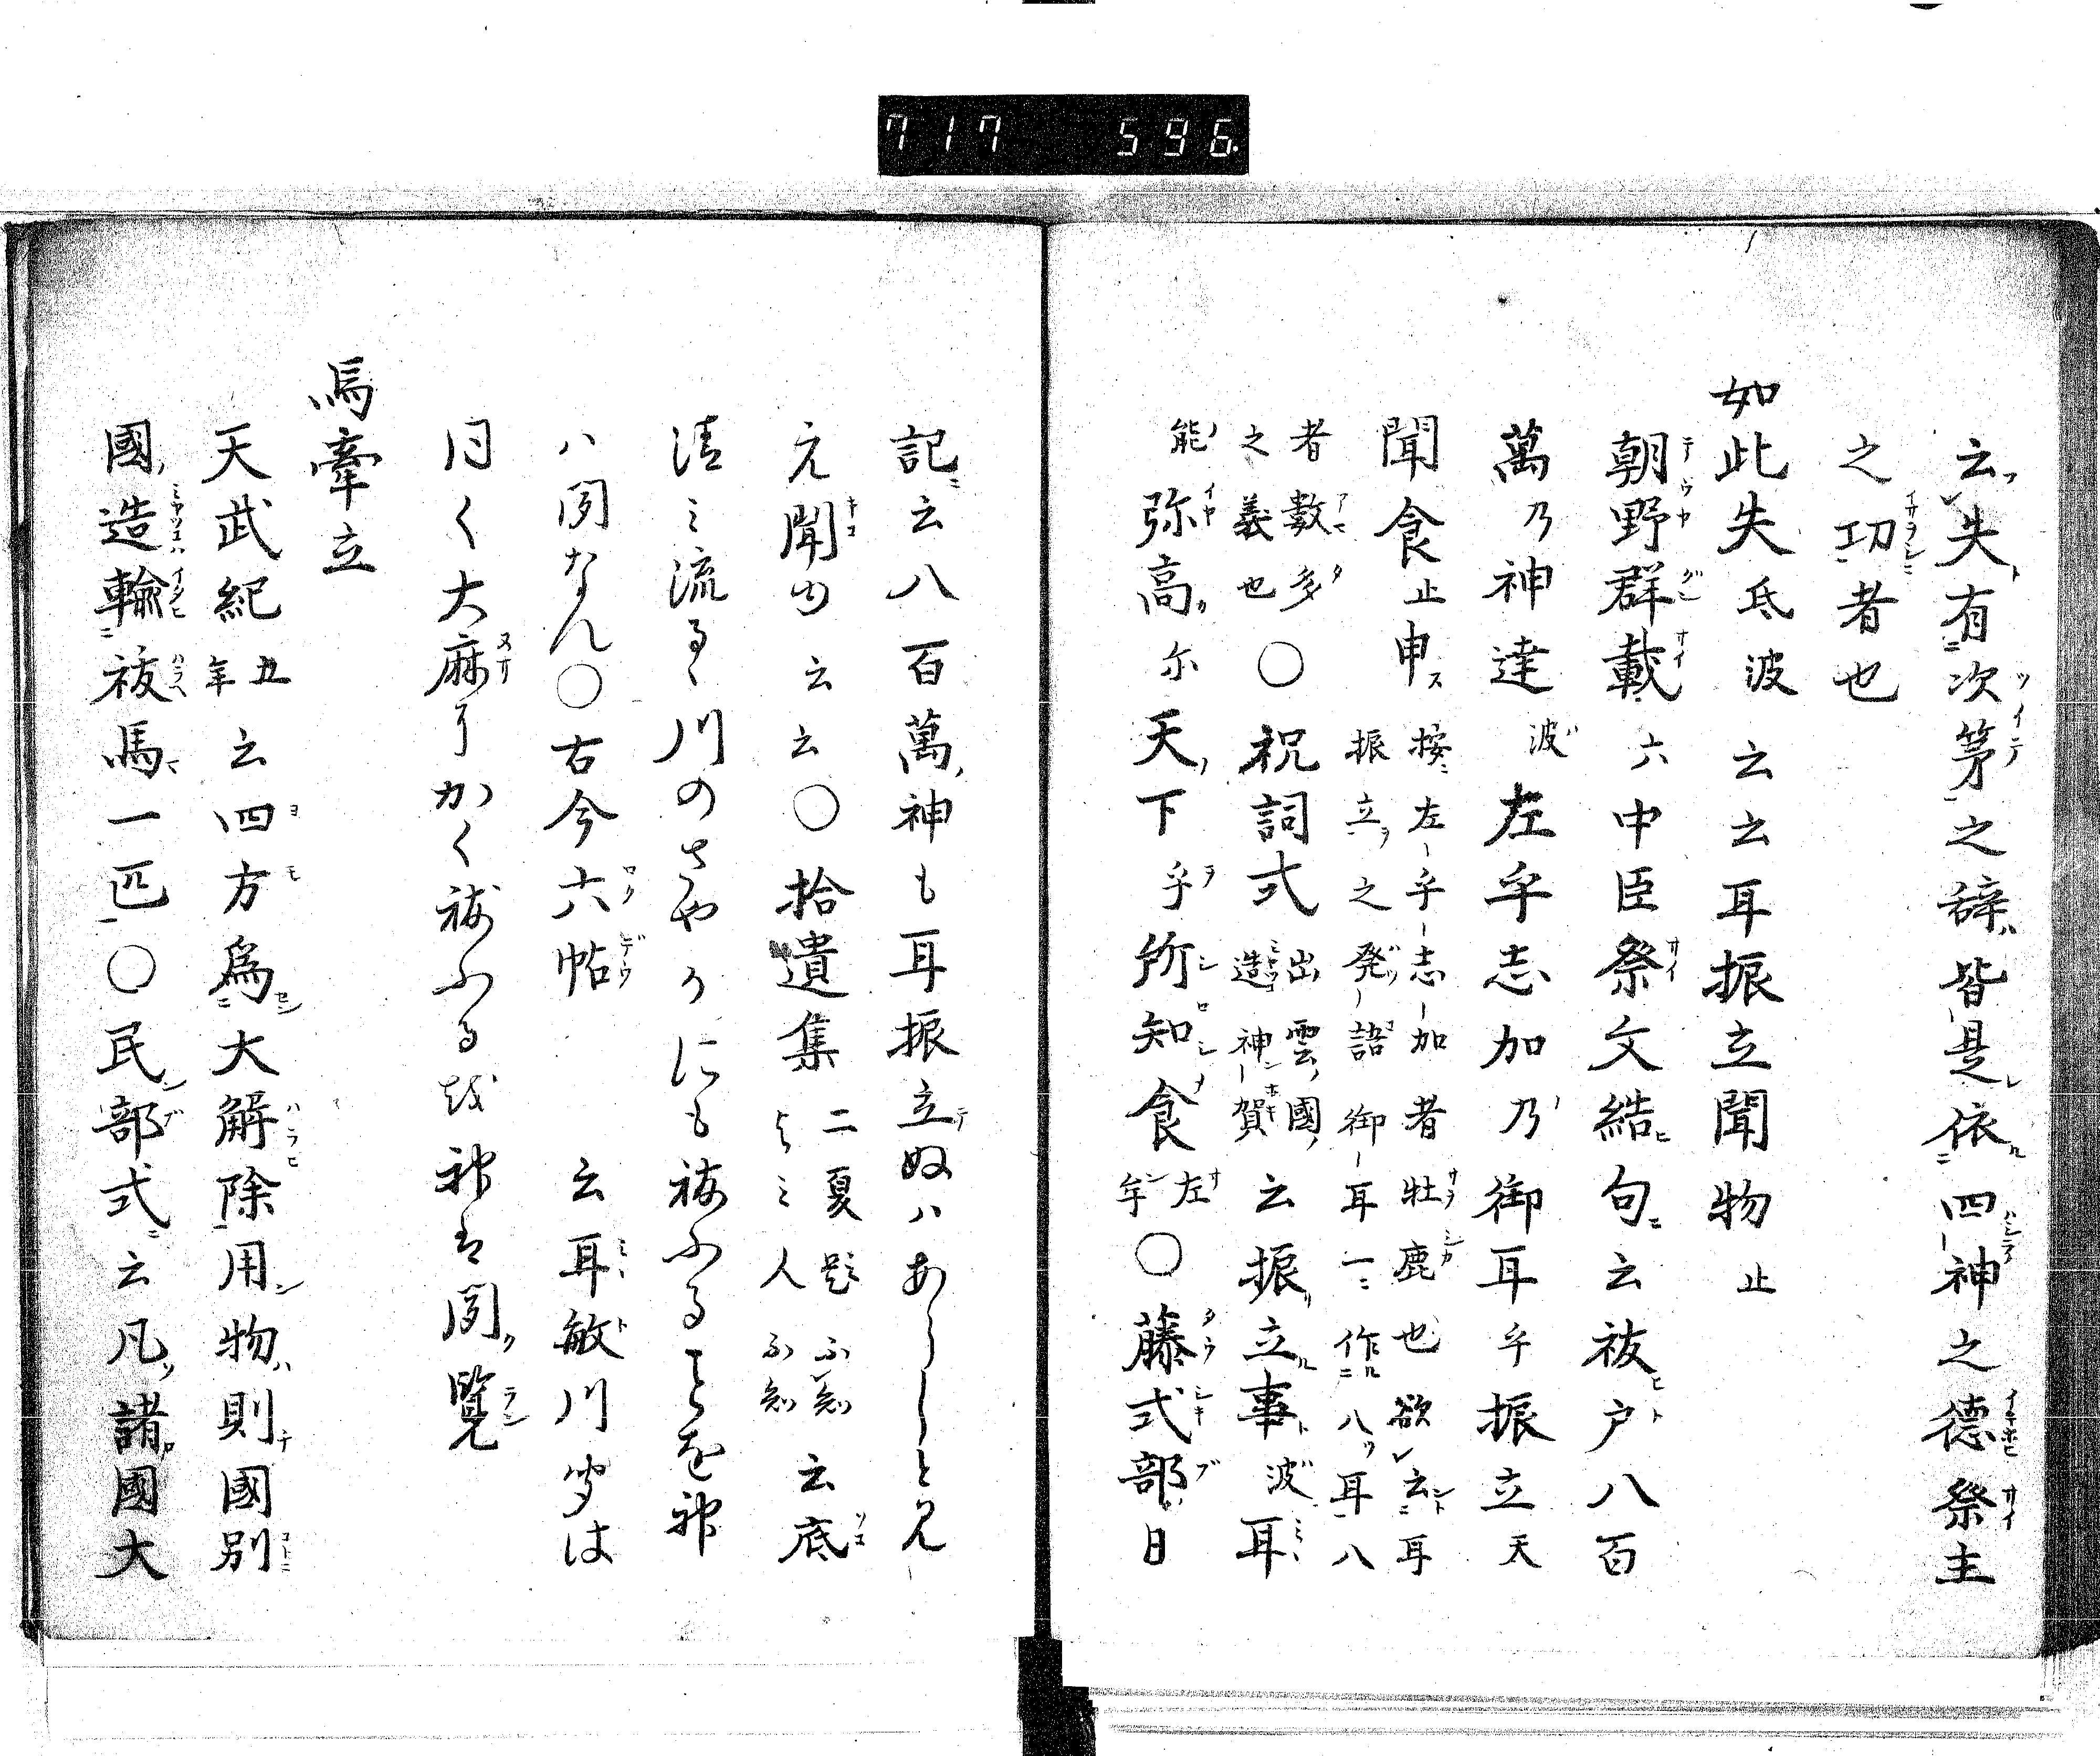 717 596.
云失有次第之辞皆是依四神之德祭主
之功者也
如此失氐波云云耳振立聞物止
朝野群載六中臣祭文結句云祓戸八百
萬乃神達波左乎志加乃御耳乎振立天
聞食止申按左乎志加者牡鹿也欲云耳
振立之発語御耳一作八耳八
者數多
之義也〇祝詞式出雲國
造神賀云振立事波耳
能弥高尓天下乎所知食左
牟〇藤式部日
記云八百萬神も耳振立ぬハあらしと見
元聞ゆ云云〇拾遺集二夏題不知
よミ人不知云底
清ミ流るゝ川のさやかにも祓ふることを神
ハ聞なん〇古今六帖 云耳敏川
く大麻かく祓ふる 神 聞覧
馬牽立
天武紀五
年云四方爲大解除用物則國別
國造輸祓馬一匹〇民部式云凡諸國大